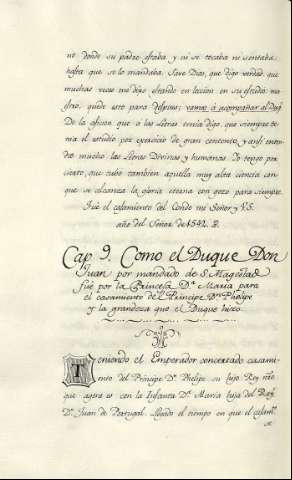 no donde su padre estaba y ni se tocaba ni sentaba
hasta que se lo mandaba. Save Dios, que digo verdad, que
muchas veces me dejo estando en leccion en su estudio: mo
strio, quede esto para Visperas; vamos á acompañar al Duq
De la aficion que á las Letras tenia digo, que siempre te-
nia el estudio por exercicio de gran contento, y ansi enten-
dió mucho las Letras Divinas y humanas. Io tengo por
cierto, que tubo tambien aquella muy alta ciencia con
que se alcanza la gloria eterna con gozo para siempre.
Fué el casamiento del Conde mi Señor y V.S.
año del Señor de 1542.
Cap. 9. Como el Duque Don
Juan por mandado de S. Magestad
fué por la Princesa Dª Maria para
el casamiento del Principe Dn Phelipe
y la grandeza que el Duque hizo.
Teniendo el Emperador concertado casami-
ento del Principe Dn Phelipe su hijo Rey nro
que agora es con la Infanta Dª Maria hija del Rey
Dn Juan de Portugal. Llegado el tiempo en que el casam